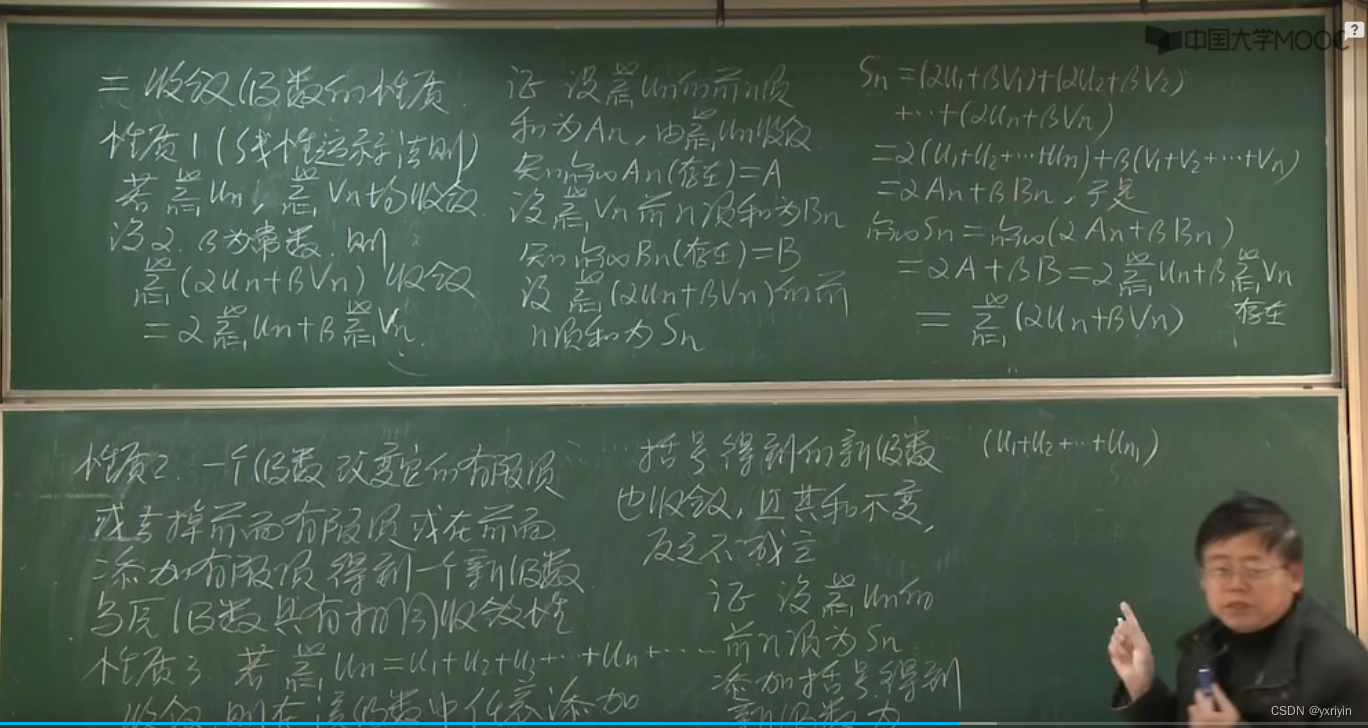 二 收敛级数的性质
性质1 (线性运算法则)
若 ∑_{n=1}^∞ Un, ∑_{n=1}^∞ Vn均收敛
设α, β为常数, 则
∑_{n=1}^∞ (αUn+βVn) 收敛
= α ∑_{n=1}^∞ Un+β ∑_{n=1}^∞ Vn.
证 设 ∑_{n=1}^∞ Un的前n项
和为An, 由 ∑_{n=1}^∞ Un收敛
知 lim_{n→∞} An(存在)=A
设 ∑_{n=1}^∞ Vn 前n项和为Bn
知 lim_{n→∞} Bn(存在)=B
设 ∑_{n=1}^∞ (αUn+βVn)的前
n项和为Sn
Sn=(αU1+βV1)+(αU2+βV2)
+⋯+(αUn+βVn)
=α(U1+U2+⋯+Un)+β(V1+V2+⋯+Vn)
=αAn+βBn, 于是
lim_{n→∞} Sn=lim_{n→∞}(αAn+βBn)
=αA+βB=α∑_{n=1}^∞ Un+β∑_{n=1}^∞ Vn
= ∑_{n=1}^∞ (αUn+βVn) 存在
性质2. 一个级数改变它的有限项
或去掉前面有限项或在前面
添加有限项得到一个新级数
与原级数具有相同收敛性
性质3 若 ∑_{n=1}^∞ Un=U1+U2+U3+⋯+Un+⋯
收敛, 则在该级数中任意添加
括号得到的新级数
也收敛, 且其和不变,
反之不成立
证 设 ∑_{n=1}^∞ Un的
前n项为Sn
添加括号得到
新级数为
(U1+U2+⋯+Un1)
中国大学MOOC
?
CSDN @yxriyin